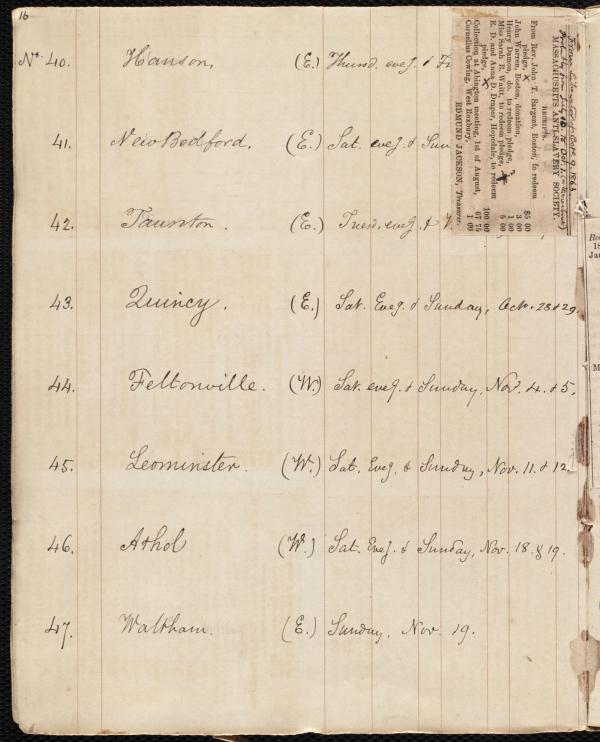 16
No. 40. Hanson. (E.) Thursd. eveg. &
41. New Bedford. (E.) Sat. eveg. & Sun
42. Taunton. (E.) Tuesd. eveg. &
43. Quincy. (E.) Sat. Eveg. & Sunday, Oct. 28 & 29.
44. Feltonville. (W.) Sat. eveg. & Sunday, Nov. 4. & 5.
45. Leominster. (W.) Sat. Eveg. & Sunday, Nov. 11. & 12
46. Athol (W.) Sat. Eveg. & Sunday, Nov. 18. & 19.
47. Waltham. (E.) Sunday, Nov. 19.
From Liberator of Oct. 9, 1863
MASSACHUSETTS ANTI-SLAVERY SOCIETY.
RECEIPTS.
From Rev. John T. Sargent, Boston, to redeem
pledge, X $5 00
John Warren, Boston, donation, 3 00
Henry Damon, do. to redeem pledge, 1 00
Miss Sarah B. Waitt, to redeem pledge, 5 00
E. D. and Anna D. Draper, Hopedale, to redeem
pledge, X 100 00
Collection at Abington meeting, 1st of August, 67 75
Cornelius Cowing, West Roxbury, 1 00
EDMUND JACKSON, Treasurer.
Re
18
Ja
M